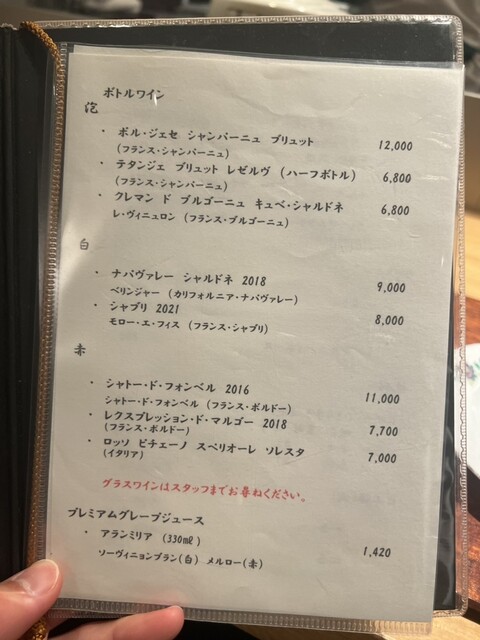 ボトルワイン
泡
・ ポル・ジェセ シャンパーニュ ブリュット 12,000
(フランス・シャンパーニュ)
・ テタンジェ ブリュット レゼルヴ (ハーフボトル) 6,800
(フランス・シャンパーニュ)
・ クレマン ド ブルゴーニュ キュベ・シャルドネ 6,800
レ・ヴィニュロン (フランス・ブルゴーニュ)
白
・ ナパヴァレー シャルドネ 2018 9,000
ベリンジャー (カリフォルニア・ナパヴァレー)
・ シャブリ 2021 8,000
モロー・エ・フィス (フランス・シャブリ)
赤
・ シャトー・ド・フォンベル 2016 11,000
シャトー・ド・フォンベル (フランス・ボルドー)
・ レクスプレッション・ド・マルゴー 2018 7,700
(フランス・ボルドー)
・ ロッソ ピチェーノ スペリオーレ ソレスタ 7,000
(イタリア)
グラスワインはスタッフまでお尋ねください。
プレミアムグレープジュース
・ アランミリア (330㎖) 1,420
ソーヴィニョンブラン(白) メルロー(赤)